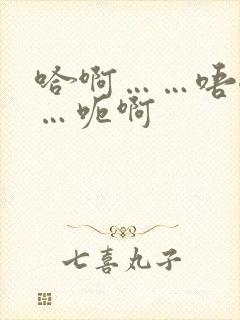 哈啊……唔
…呃啊
七喜丸子